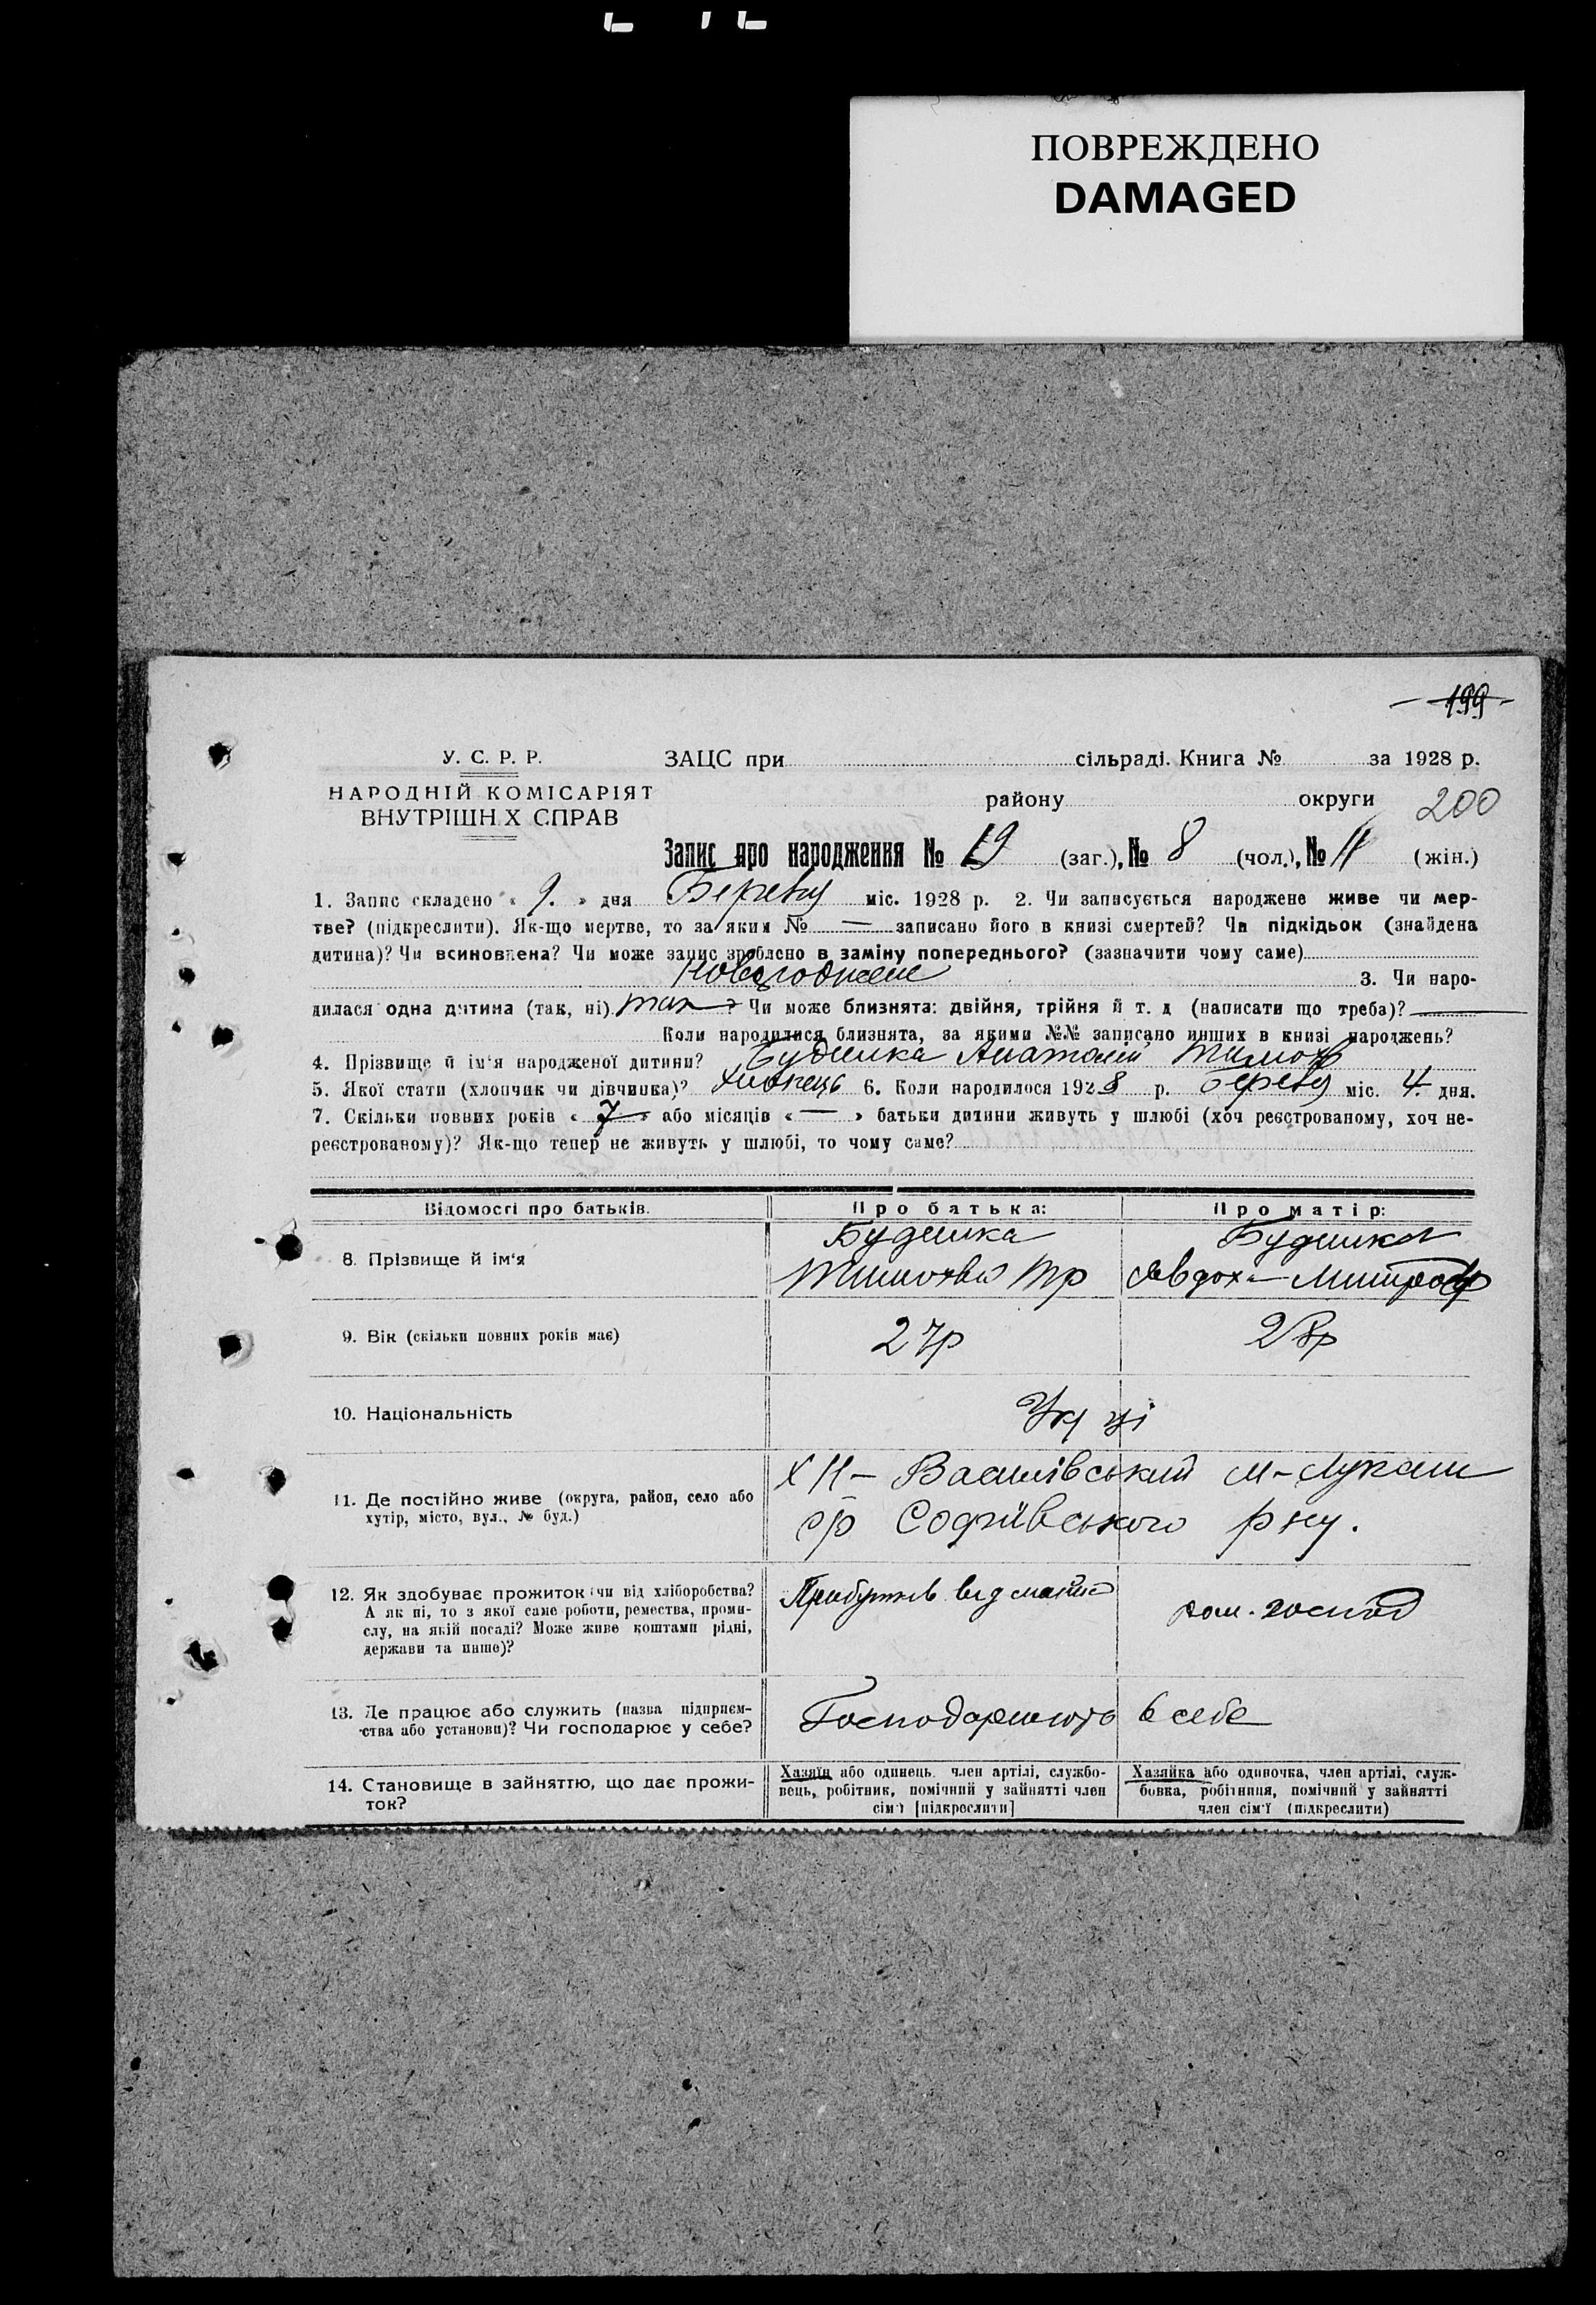 ПОВРЕЖДЕНО
DAMAGED
199
У. С. Р. Р.
НАРОДНІЙ КОМІСАРІЯТ
ВНУТРІШН Х СПРАВ
ЗАЦС при сільраді. Книга № за 1928 р.
району округи 200
Запис про народження № 19 (заг.), № 8 (чол.), № 11 (жін.)
1. Запис складено « 9. » дня Березня міс. 1928 р. 2. Чи записується народжене живе чи мер-
тве? (підкреслити). Як-що мертве, то за яким № — записано його в книзі смертей? Чи підкідьок (знайдена
дитина)? Чи всиновлена? Чи може запис зроблено в заміну попереднього? (зазначити чому саме)
3. Чи наро-
дилася одна дитина (так, ні) так ? Чи може близнята: двійня, трійня й т. д (написати що треба)? —
Коли народилися близнята, за якими №№ записано инших в книзі народжень?
4. Прізвище й ім'я народженої дитини? Анатолій Тимоф
5. Якої стати (хлопчик чи дівчинка)? Хлопець 6. Коли народилося 1928 р. березня міс. 4. дня.
7. Скільки повних років « 7 » або місяців « — » батьки дитини живуть у шлюбі (хоч реєстрованому, хоч не-
реєстрованому)? Як-що тепер не живуть у шлюбі, то чому саме?
Відомості про батьків. Про батька: Про матір:
8. Прізвище й ім'я
9. Вік (скільки повних років має) 27р 28р
10. Національність Укр ці
11. Де постійно живе (округа, район, село або
хутір, місто, вул., № буд.)
Х Н- Василівський М-
с/р Софіївського р ну.
12. Як здобуває прожиток (чи від хліборобства?
А як ні, то з якої саме роботи, ремества, проми-
слу, на якій посаді? Може живе коштами рідні,
держави та инше)?
дом. господ
13. Де працює або служить (назва підприєм-
ства або установи)? Чи господарює у себе?
Господарюють в себе
14. Становище в зайняттю, що дає прожи-
ток?
Хазяїн або одинець. член артілі, службо-
вець, робітник, помічний у зайнятті член
сім'ї [підкреслити]
Хазяйка або одиночка, член артілі, служ-
бовка, робітниця, помічний у зайнятті
член сім'ї (підкреслити)